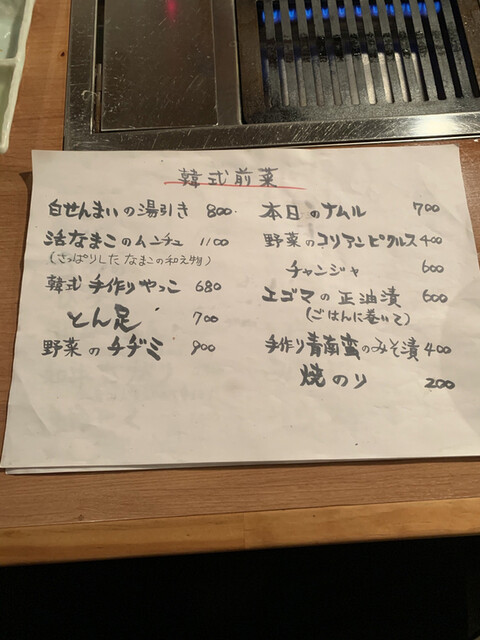 韓式前菜
白せんまいの湯引き 800.
活なまこのムンチュ 1100
(さっぱりした なまこの和え物)
韓式 手作りやっこ 680
とん足 700
野菜の チヂミ 900
本日のナムル 700
野菜のコリアンピクルス 400
チャンジャ 600
エゴマの正油漬 600
(ごはんに巻いて)
手作り青南蛮のみそ漬 400
焼のり 200